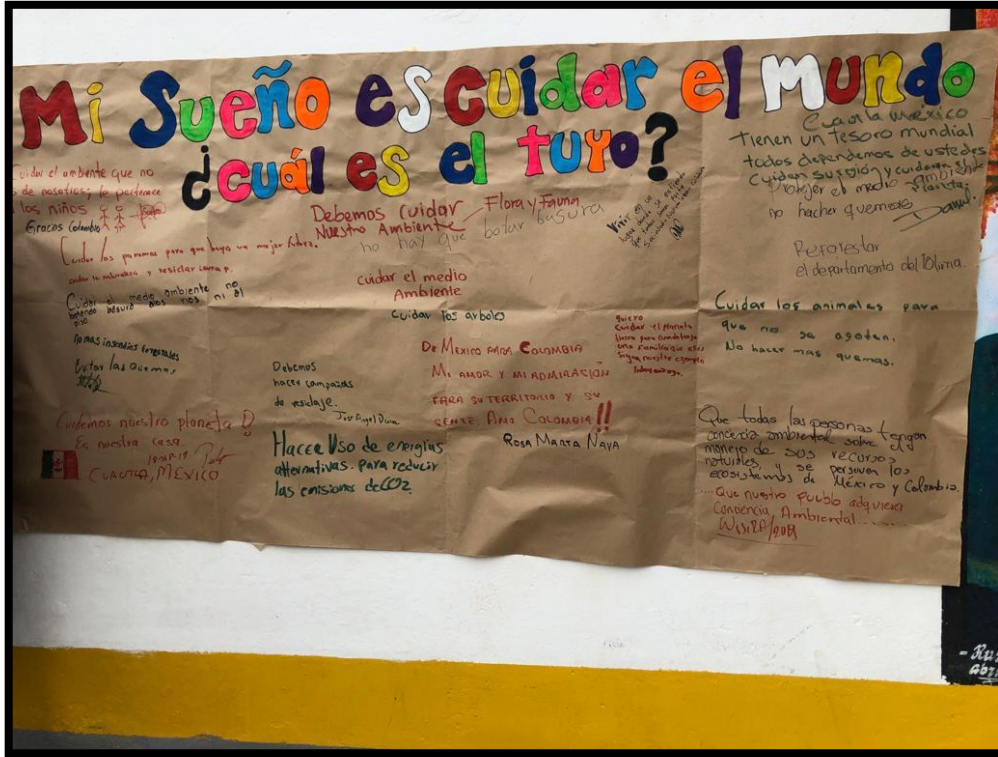 Mi Sueño es cuidar el mundo
¿cuál es el tuyo?
Cuidar el ambente que no
de nosotros; le pertenece
los niños
Gracias Colombia
Cuidar los para que haya un mejor
cuidar la naturaleza y resiclar
Cuidar el medio ambiente no
botando basura ni al
No mas insendios forestales
Evitar las Quemas
Cuidemos nuestro planeta
Es nuestra casa.
CUAUTLA, MEXICO
Debemos cuidar
Nuestro Ambiente
Flora y Fauna
no hay que botar basura
cuidar el medio
Ambiente
Cuidar los arboles
Debemos
hacer campañas
de resiclaje.
Hacer Uso de energías
alternativas para reducir
las emisiones de CO2.
De Mexico para Colombia
Mi amor y mi admiración
para su territorio y su
gente. Amo Colombia!!
Rosa Marta Nava
Vivir en un
quiero
cuidar el planeta
una familia que ellos
sigan nuestro ejemplo
Cuautla Mexico
Tienen un tesoro mundial
todos dependemos de ustedes
Cuidan su región y cuidaran el
Planeta.
Proteger el medio Ambiente
no hacher quemas
Daniel.
Reforestar
el departamento del Tolima.
Cuidar los animales para
que no se agoten.
No hacer mas quemas.
Que todas las personas tengan
conciencia ambiental sobre el
manejo de sus recursos
naturales, y se perserven los
ecosistemas de México y Colombia.
....Que nuestro pueblo adquiera
Conciencia Ambiental......